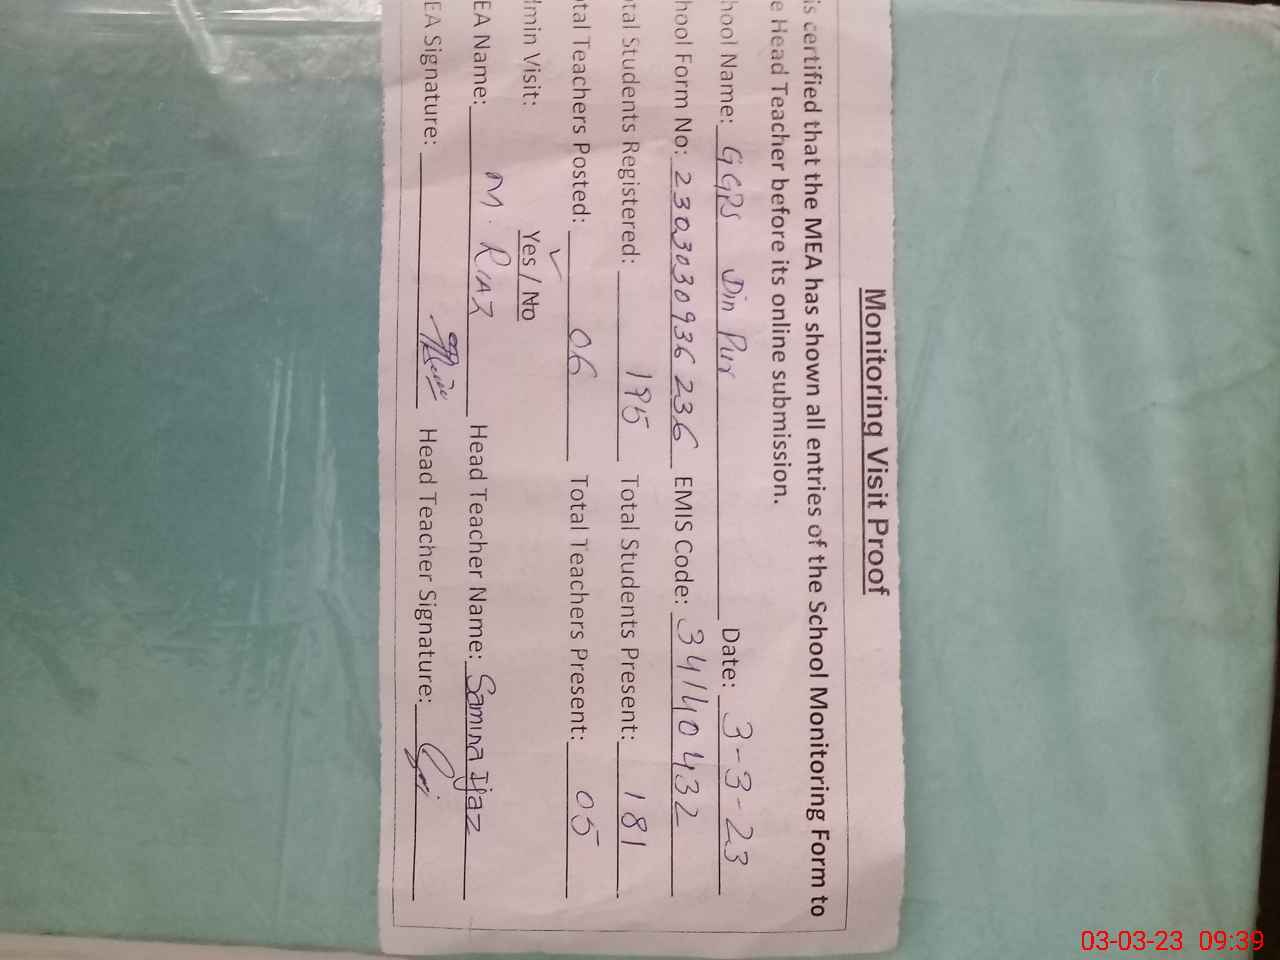 Monitoring Visit Proof
is certified that the MEA has shown all entries of the School Monitoring Form to
e Head Teacher before its online submission.
hool Name: GGPS Din Pur Date: 3-3-23
hool Form No: 2303030936236 EMIS Code: 34140432
tal Students Registered: 195 Total Students Present: 181
tal Teachers Posted: 06 Total Teachers Present: 05
min Visit: Yes / No
EA Name: M. RIAZ Head Teacher Name: Samina Ijaz
EA Signature: Head Teacher Signature:
03-03-23 09:39